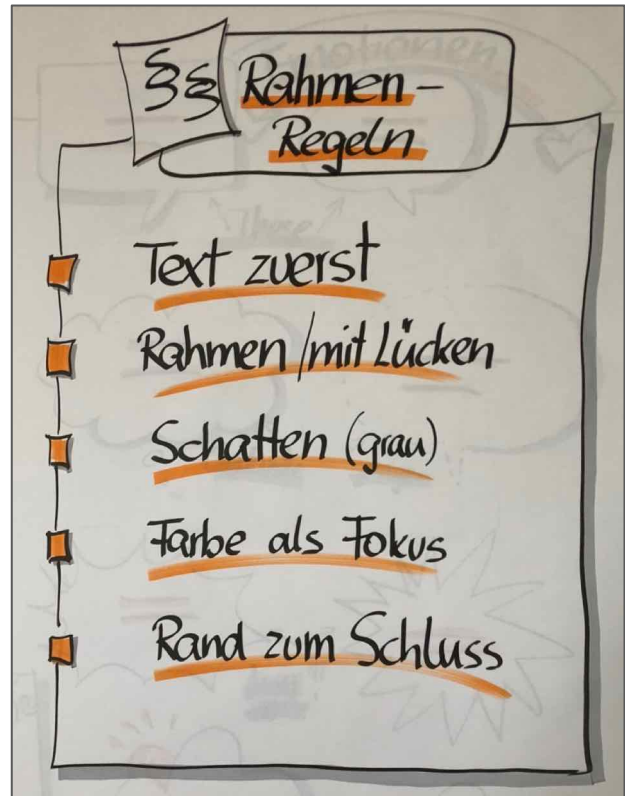 §§ Rahmen-
Regeln
Text zuerst
Rahmen/mit Lücken
Schatten (grau)
Farbe als Fokus
Rand zum Schluss
Emotionen